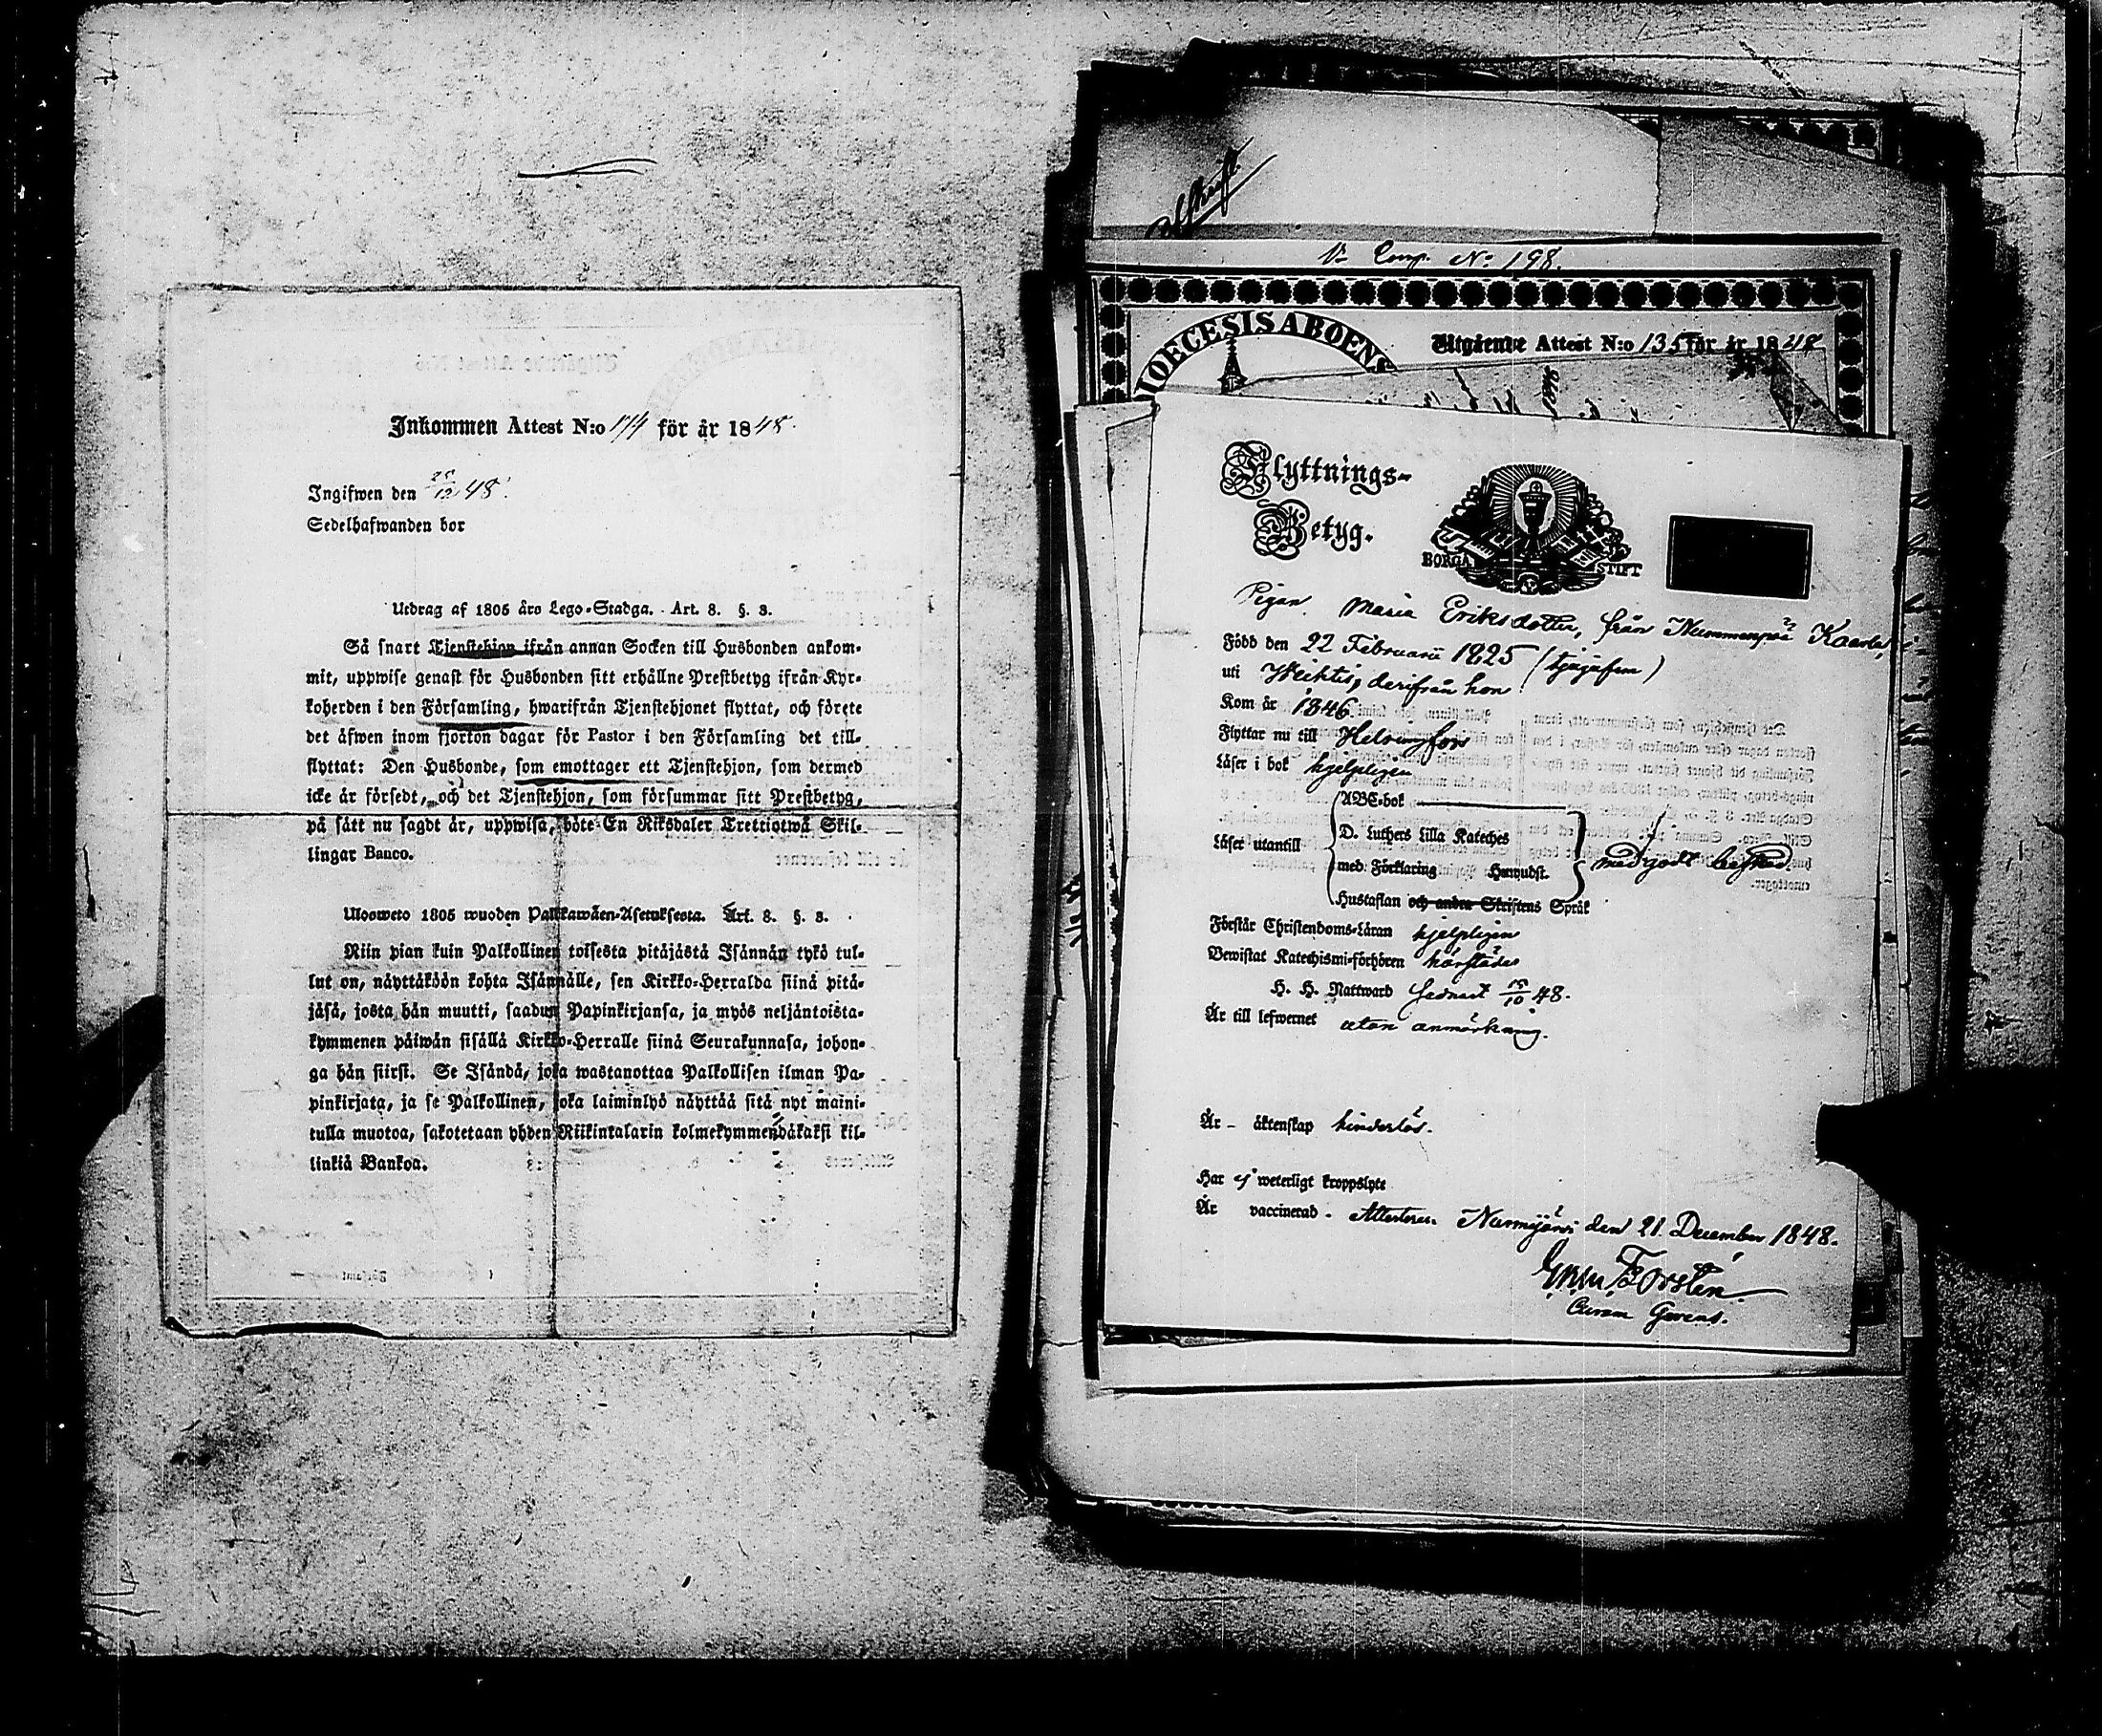 Inkommen Attest N:o 174 för år 1848.
Ingifwen den 28/12 48.
Sedelhafwanden bor
Utdrag af 1805 års Lego-Stadga. Art. 8. §. 3.
Så snart Tjenstehjon ifrån annan Socken till Husbonden ankom-
mit, uppwise genast för Husbonden sitt erhållne Prestbetyg ifrån Kyr-
koherden i den Församling, hwarifrån Tjenstehjonet flyttat, och förete
det äfwen inom fjorton dagar för Pastor i den Församling det till-
flyttat: Den Husbonde, som emottager ett Tjenstehjon, som dermed
icke är försedt, och det Tjenstehjon, som försummar sitt Prestbetyg,
på sätt nu sagdt är, uppwisa, böte En Riksdaler Trettiotwå Skil-
lingar Banco.
Ulosweto 1805 wuoden Palkkawäen-Asetuksesta. Art. 8. §. 3.
Niin pian kuin Palkollinen toisesta pitäjästä Isännän tykö tul-
lut on, näyttäköön kohta Isännälle, sen Kirkko-Herralda siinä pitä-
jäsä, josta hän muutti, saadun Papinkirjansa, ja myös neljäntoista-
kymmenen päiwän sisällä Kirkko-Herralle siinä Seurakunnasa, johon-
ga hän siirsi. Se Isändä, joka wastanottaa Palkollisen ilman Pa-
pinkirjata, ja se Palkollinen, joka laiminlyö näyttää sitä nyt maini-
tulla muotoa, sakotetaan yhden Riikintalarin kolmekymmendäkaksi kil-
linkiä Bankoa.
Afskrift
Comp. No 198.
DIOECESIS ABOENS
Utgående Attest N:o 135 för år 1848
Flyttnings-
Betyg.
BORGÅ STIFT
Pigan Maria Eriksdotter, från Nummenpää Kaarla,
Född den 22 Februarii 1825 (tjugufem)
uti Wichtis, derifrån hon
Kom år 1846.
Flyttar nu till Helsingfors
Läser i bok hjelpligen
ABC-bok
D. Luthers Lilla Kateches
Läser utantill
med Förklaring Huwudst.
med godt besked.
Hustaflan och andra Skriftens Språk
Förstår Christendoms-Läran hjelpligen
Bewistat Katechismi-förhören härstädes
H. H. Nattward sednast 15/10 48.
Är till lefwernet utan anmärkning.
Är äktenskap hinderlös.
Har ej weterligt kroppslyte
Är vaccinerad. Attesterar. Nurmijärvi den 21 December 1848.
Forstén
Curam Gerens.